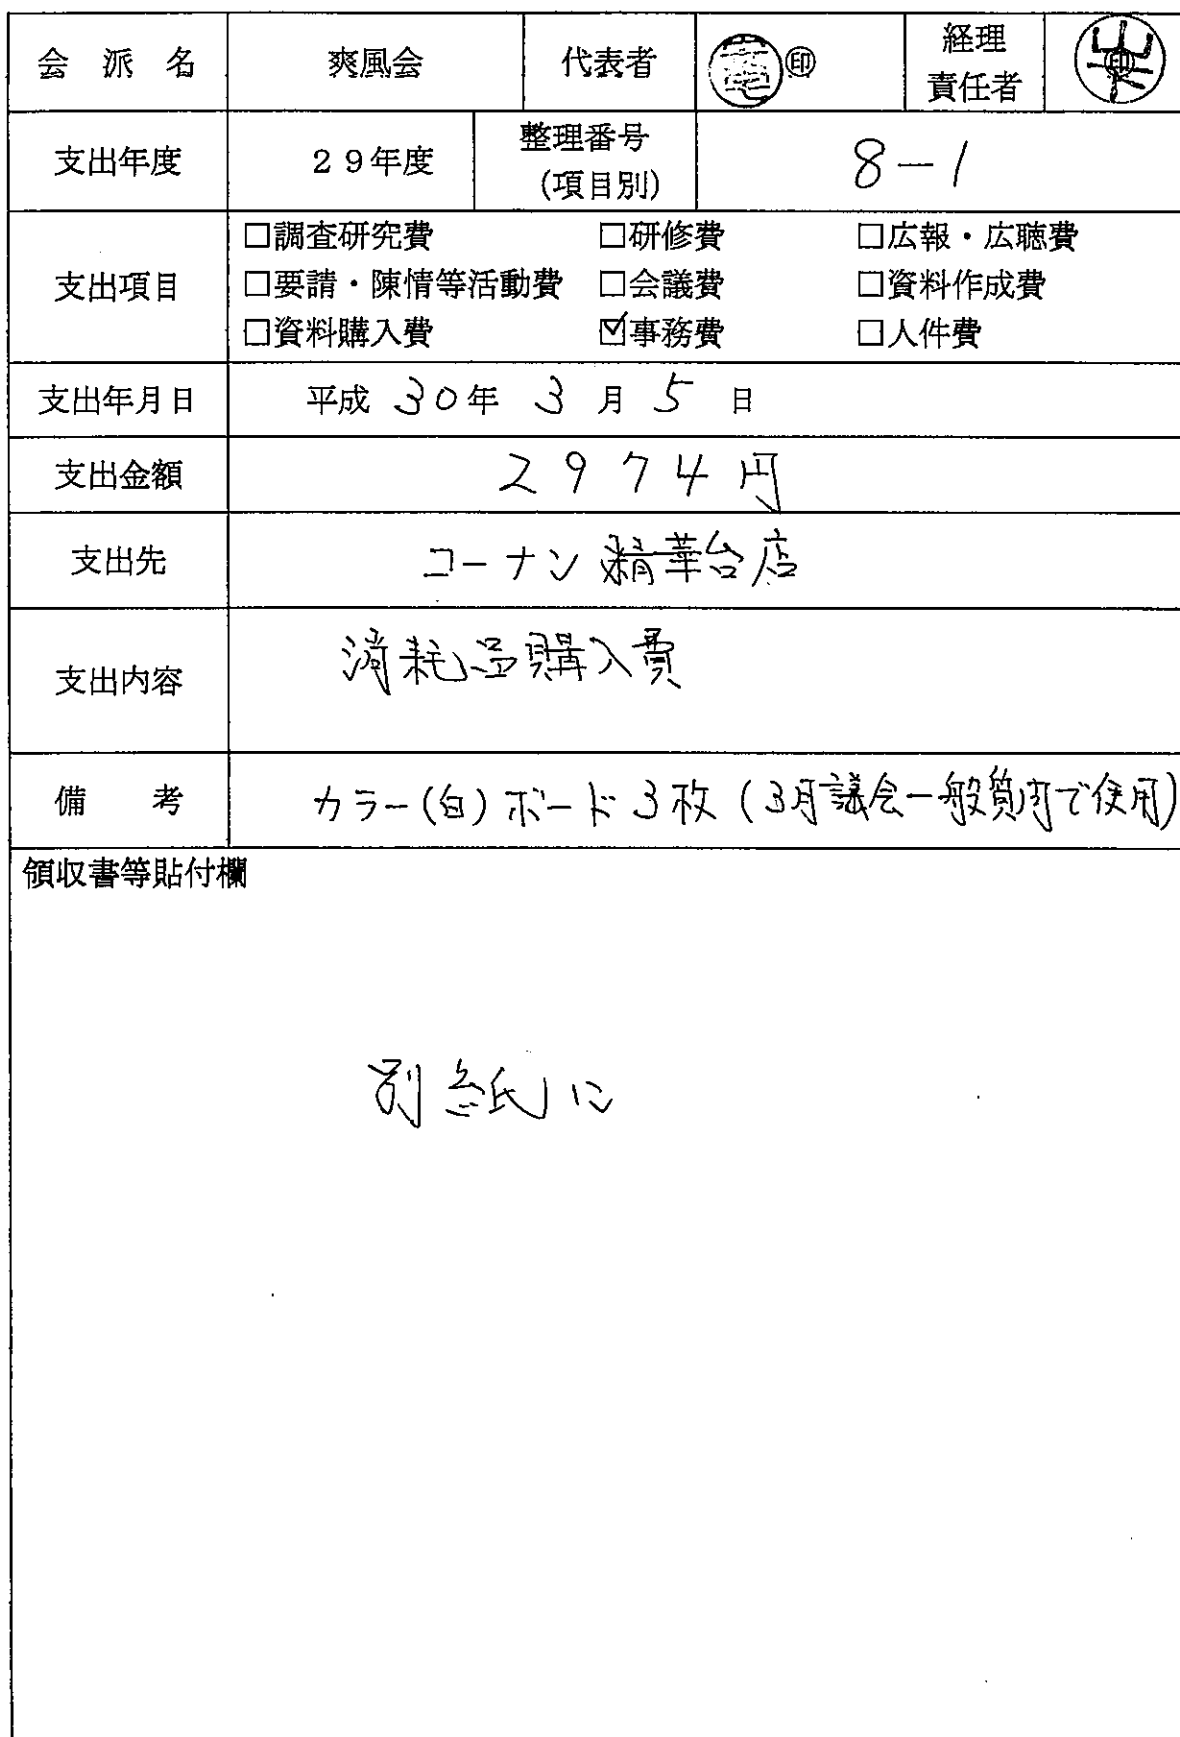 会派名 爽風会 代表者 ㊞ 経理責任者 印
支出年度 29年度 整理番号(項目別) 8-1
支出項目 □調査研究費 □研修費 □広報・広聴費
□要請・陳情等活動費 □会議費 □資料作成費
□資料購入費 ☑事務費 □人件費
支出年月日 平成 30年 3月 5日
支出金額 2974円
支出先 コーナン精華台店
支出内容 消耗品購入費
備考 カラー(白)ボード3枚(3月議会一般質問で使用)
領収書等貼付欄
別紙に